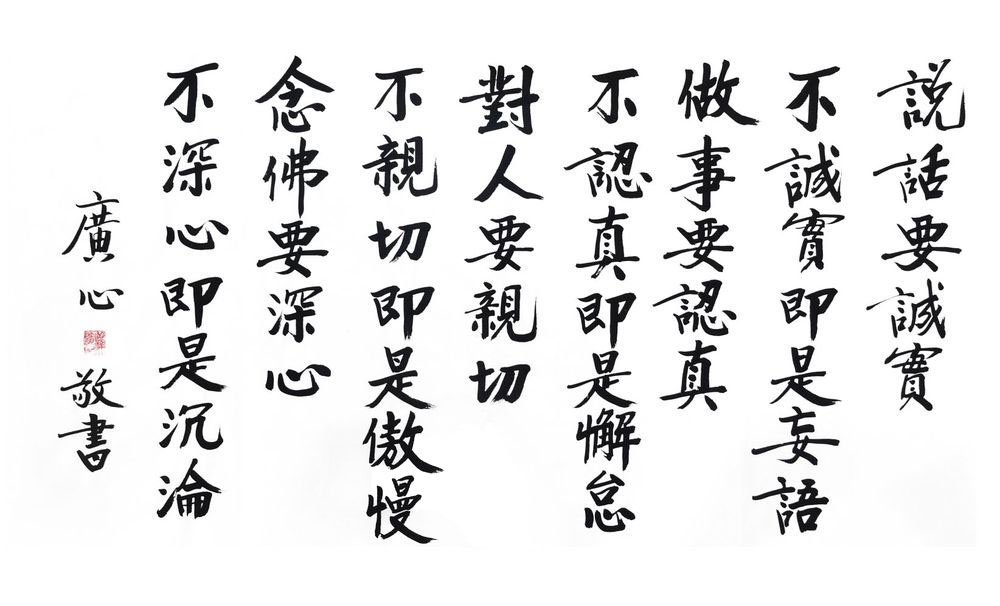 説話要誠實
不誠實即是妄語
做事要認真
不認真即是懈怠
對人要親切
不親切即是傲慢
念佛要深心
不深心即是沉淪
廣心
敬書